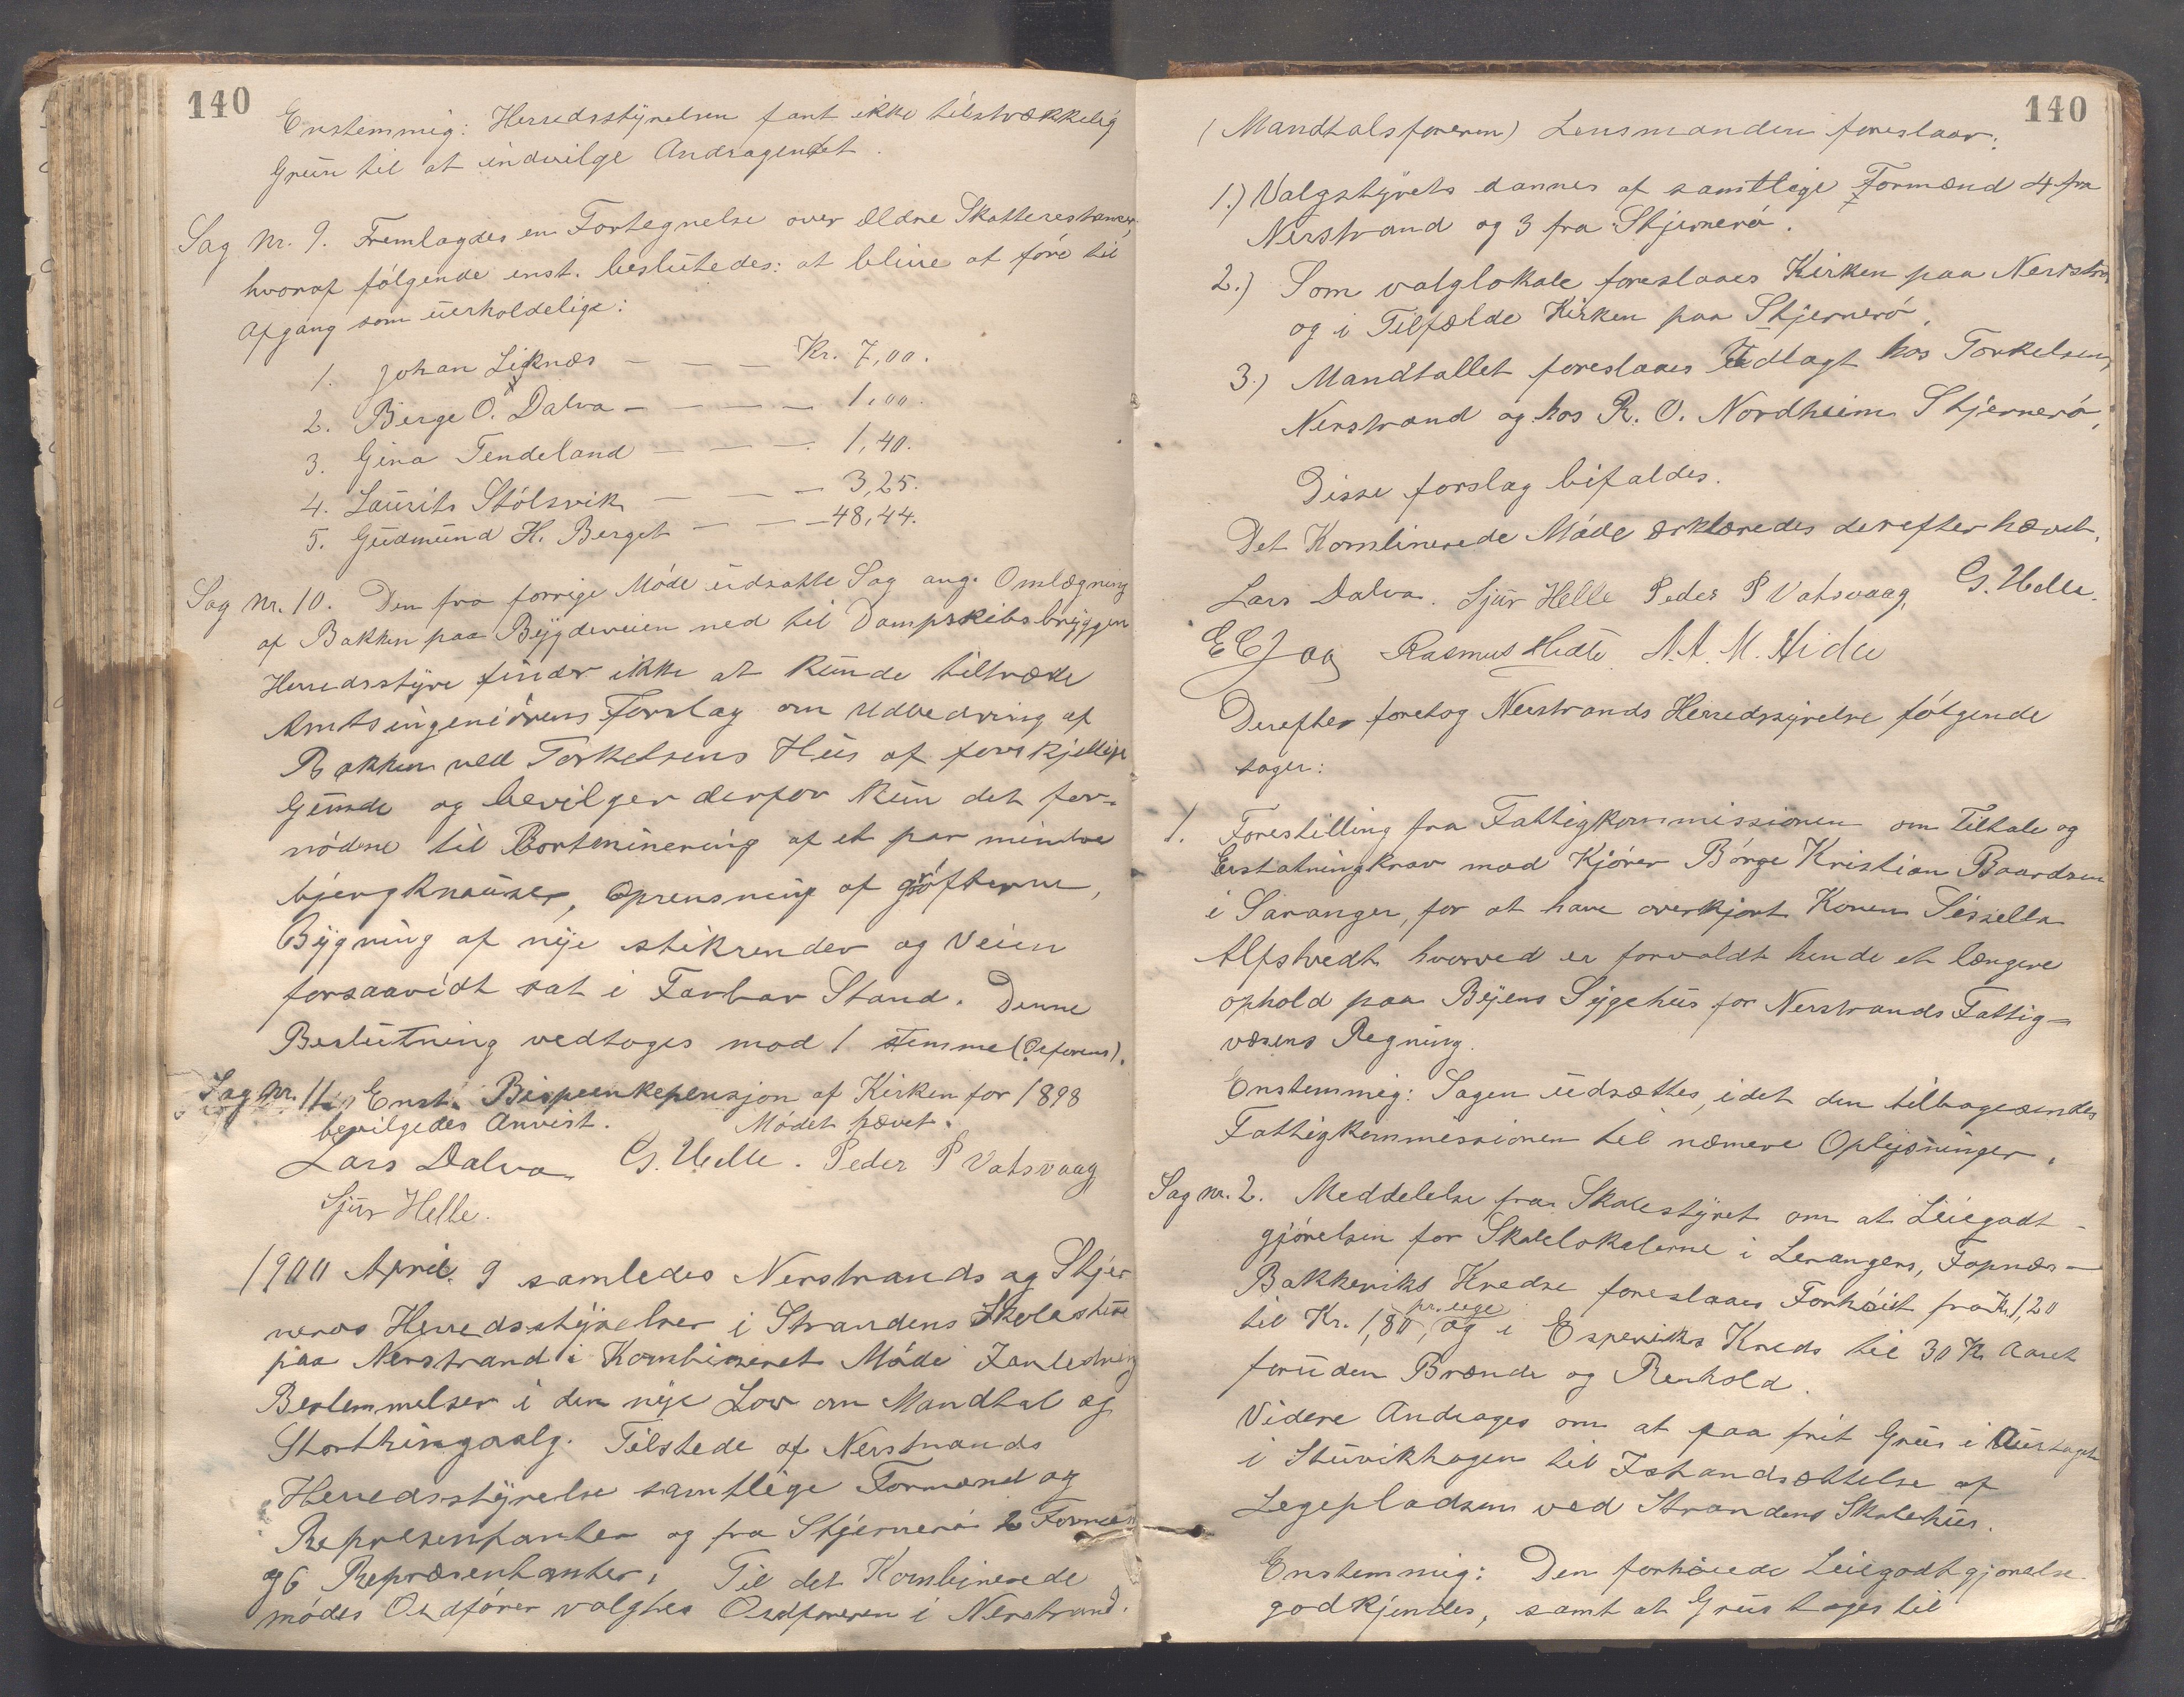 140
Enstemmig: Herredsstyrelsen fant ikke tilstrækkelig
Grun til at indvilge Andragendet.
Sag Nr. 9. Fremlagdes en Fortegnelse over ældre Skatterestancer,
hvoraf følgende enst. beslutedes: at blive at føre til
Afgang som uerholdelige:
1. Johan Liknæs — — — Kr. 7,00.
2. Berge O. Dalva — — — — 1,00.
3. Gina Tendeland — — — 1,40.
4. Laurits Stølsvik — — — 3,25.
5. Gudmund H. Berget — — — 48,44.
Sag Nr. 10. Den fra forrige Møde udsatte Sag ang. Omlægning
af Bakken paa Bygdeveien ned til Dampskibsbryggen
Herredsstyre finder ikke at kunde tiltræde
Amtsingeniørens Forslag om Udbedring af
Bakken ved Torkelsens Hus af forskjellige
Grunde og bevilger derfor kun det for-
nødne til Bortminering af et par mindre
bjergknauser, Oprensning af grøfterne,
Bygning af nye stikrender og Veien
forsaavidt sat i Farbar Stand. Denne
Beslutning vedtoges mod 1 stemme
Sag Nr. 11. Enst. Bispeenkepensjon af Kirken for 1898
bevilgedes Anvist. Mødet hævet.
Lars Dalva G. Helle. Peder P Vatsvaag
Sjur Helle.
1900 April 9 samledes Nerstrands og Stjer
nerøs Herredsstyrelser i Strandens Skolestue
paa Nerstrand i Kombineret Møde Ianledning
Bestemmelser i den nye Lov om Mandtal og
Storthingsvalg. Tilstede af Nerstrands
Herredsstyrelse samtlige Formænd og
Repræsentanter og fra Stjernerø 2 Formæn
og 6 Repræsentanter. Til det Kombinerede
mødes Ordfører valgtes Ordføreren i Nerstrand.
140
(Mandtalsføreren) Lensmanden foreslaar:
1.) Valgstyrets dannes af samtlige Formænd 4 fra
Nerstrand og 3 fra Stjernerø.
2.) Som valglokale foreslaaes Kirken paa Nerstran
og i Tilfælde Kirken paa Stjernerø.
3.) Mandtallet foreslaaes Udlagt hos Torkelsen,
Nerstrand og hos R. O. Nordheim Stjernerø.
Disse forslag bifaldes.
Det Kombinerede Møde erklæredes derefter hævet.
Lars Dalva. Sjur Helle Peder P Vatsvaag. G. Helle.
Rasmus Hidle
Derefter foretog Nerstrands Herredsyrelse følgende
sager:
1. Forestilling fra Fattigkommissionen om Tiltale og
Erstatningkrav mod Kjører Børge Kristian Baardsen
i Savanger, for at have overkjørt Konen Sissella
Alfstvedt hvorved er forvoldt hende et længere
ophold paa Byens Sygehus for Nerstrands Fattig-
væsens Regning.
Enstemmig: Sagen udsættes, idet den tilbagesendes
Fattigkommissionen til nærmere Oplysninger.
Sag nr. 2. Meddelelse fra Skolestyret om at Leiegodt-
gjørelsen for Skolelokalerne i Lerangers, Fopnæs-
Bakkeviks Kredse foreslaaes Forhøiet fra Kr. 1,20
til Kr. 1,80 pr. uge, og i Espeviks Kreds til 30 Kr Aaret
foruden Brænde og Renhold.
Videre Andrages om at faa frit Grus i Grustaget
i Stuvikhagen til Istandsættelse af
Legepladsen ved Strandens Skolehus.
Enstemmig: Den forhøiede Leiegodtgjørelse
godkjendes, samt at Grus tages til